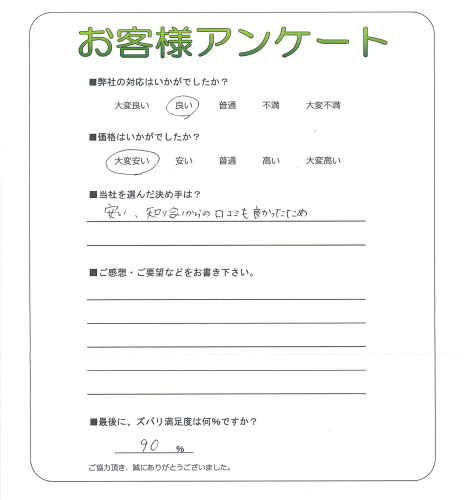 お客様アンケート
■弊社の対応はいかがでしたか?
大変良い 良い 普通 不満 大変不満
■価格はいかがでしたか?
大変安い 安い 普通 高い 大変高い
■当社を選んだ決め手は?
安い、知り合いからの口コミも良かったため
■ご感想・ご要望などをお書き下さい。
■最後に、ズバリ満足度は何%ですか?
90 %
ご協力頂き、誠にありがとうございました。